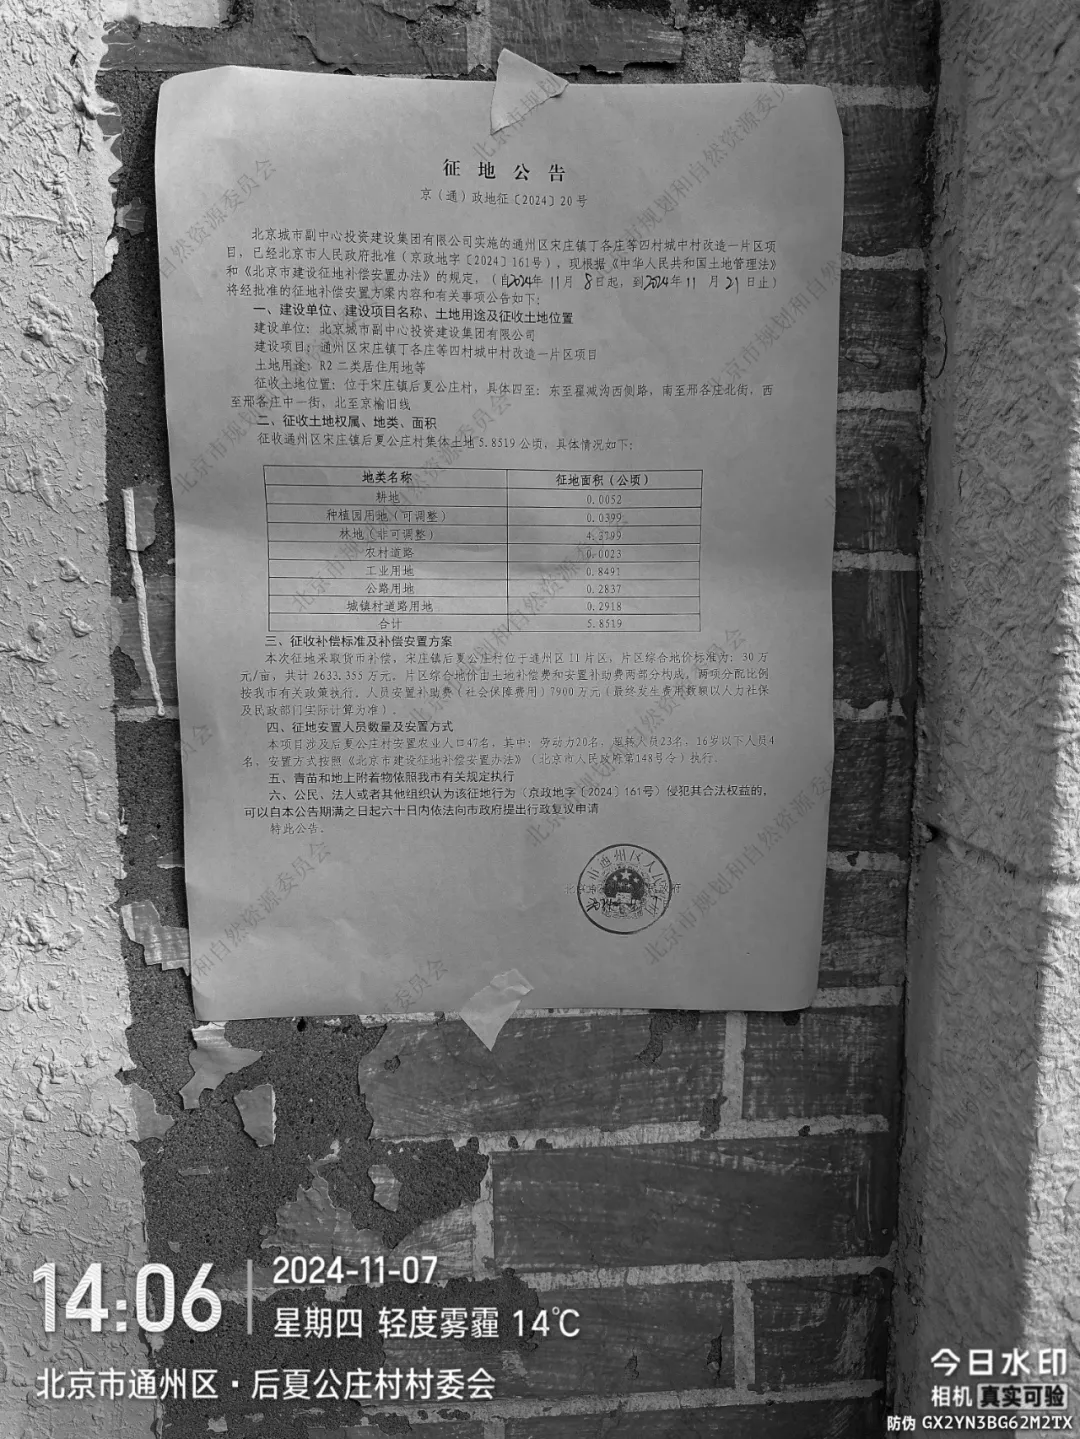 征地公告
京（通）政地征〔2024〕20号
北京城市副中心投资建设集团有限公司实施的通州区宋庄镇丁各庄等四村城中村改造一片区项
目，已经北京市人民政府批准（京政地字〔2024〕161号），现根据《中华人民共和国土地管理法》
和《北京市建设征地补偿安置办法》的规定，（自2024年11月8日起，到2024年11月21日止）
将经批准的征地补偿安置方案内容和有关事项公告如下：
一、建设单位、建设项目名称、土地用途及征收土地位置
建设单位：北京城市副中心投资建设集团有限公司
建设项目：通州区宋庄镇丁各庄等四村城中村改造一片区项目
土地用途：R2二类居住用地等
征收土地位置：位于宋庄镇后夏公庄村，具体四至：东至翟减沟西侧路，南至邢各庄北街，西
至邢各庄中一街，北至京榆旧线
二、征收土地权属、地类、面积
征收通州区宋庄镇后夏公庄村集体土地5.8519公顷，具体情况如下：
地类名称 征地面积（公顷）
耕地 0.0052
种植园用地（可调整） 0.0399
林地（非可调整） 4.3799
农村道路 0.0023
工业用地 0.8491
公路用地 0.2837
城镇村道路用地 0.2918
合计 5.8519
三、征收补偿标准及补偿安置方案
本次征地采取货币补偿，宋庄镇后夏公庄村位于通州区II片区，片区综合地价标准为：30万
元/亩，共计2633.355万元。片区综合地价由土地补偿费和安置补助费两部分构成，两项分配比例
按我市有关政策执行。人员安置补助费（社会保障费用）7900万元（最终发生费用数额以人力社保
及民政部门实际计算为准）。
四、征地安置人员数量及安置方式
本项目涉及后夏公庄村安置农业人口47名，其中：劳动力20名，超转人员23名，16岁以下人员4
名，安置方式按照《北京市建设征地补偿安置办法》（北京市人民政府第148号令）执行。
五、青苗和地上附着物依照我市有关规定执行
六、公民、法人或者其他组织认为该征地行为（京政地字〔2024〕161号）侵犯其合法权益的，
可以自本公告期满之日起六十日内依法向市政府提出行政复议申请
特此公告。
14:06
2024-11-07
星期四 轻度雾霾 14℃
北京市通州区·后夏公庄村村委会
今日水印
相机 真实可验
防伪 GX2YN3BG62M2TX